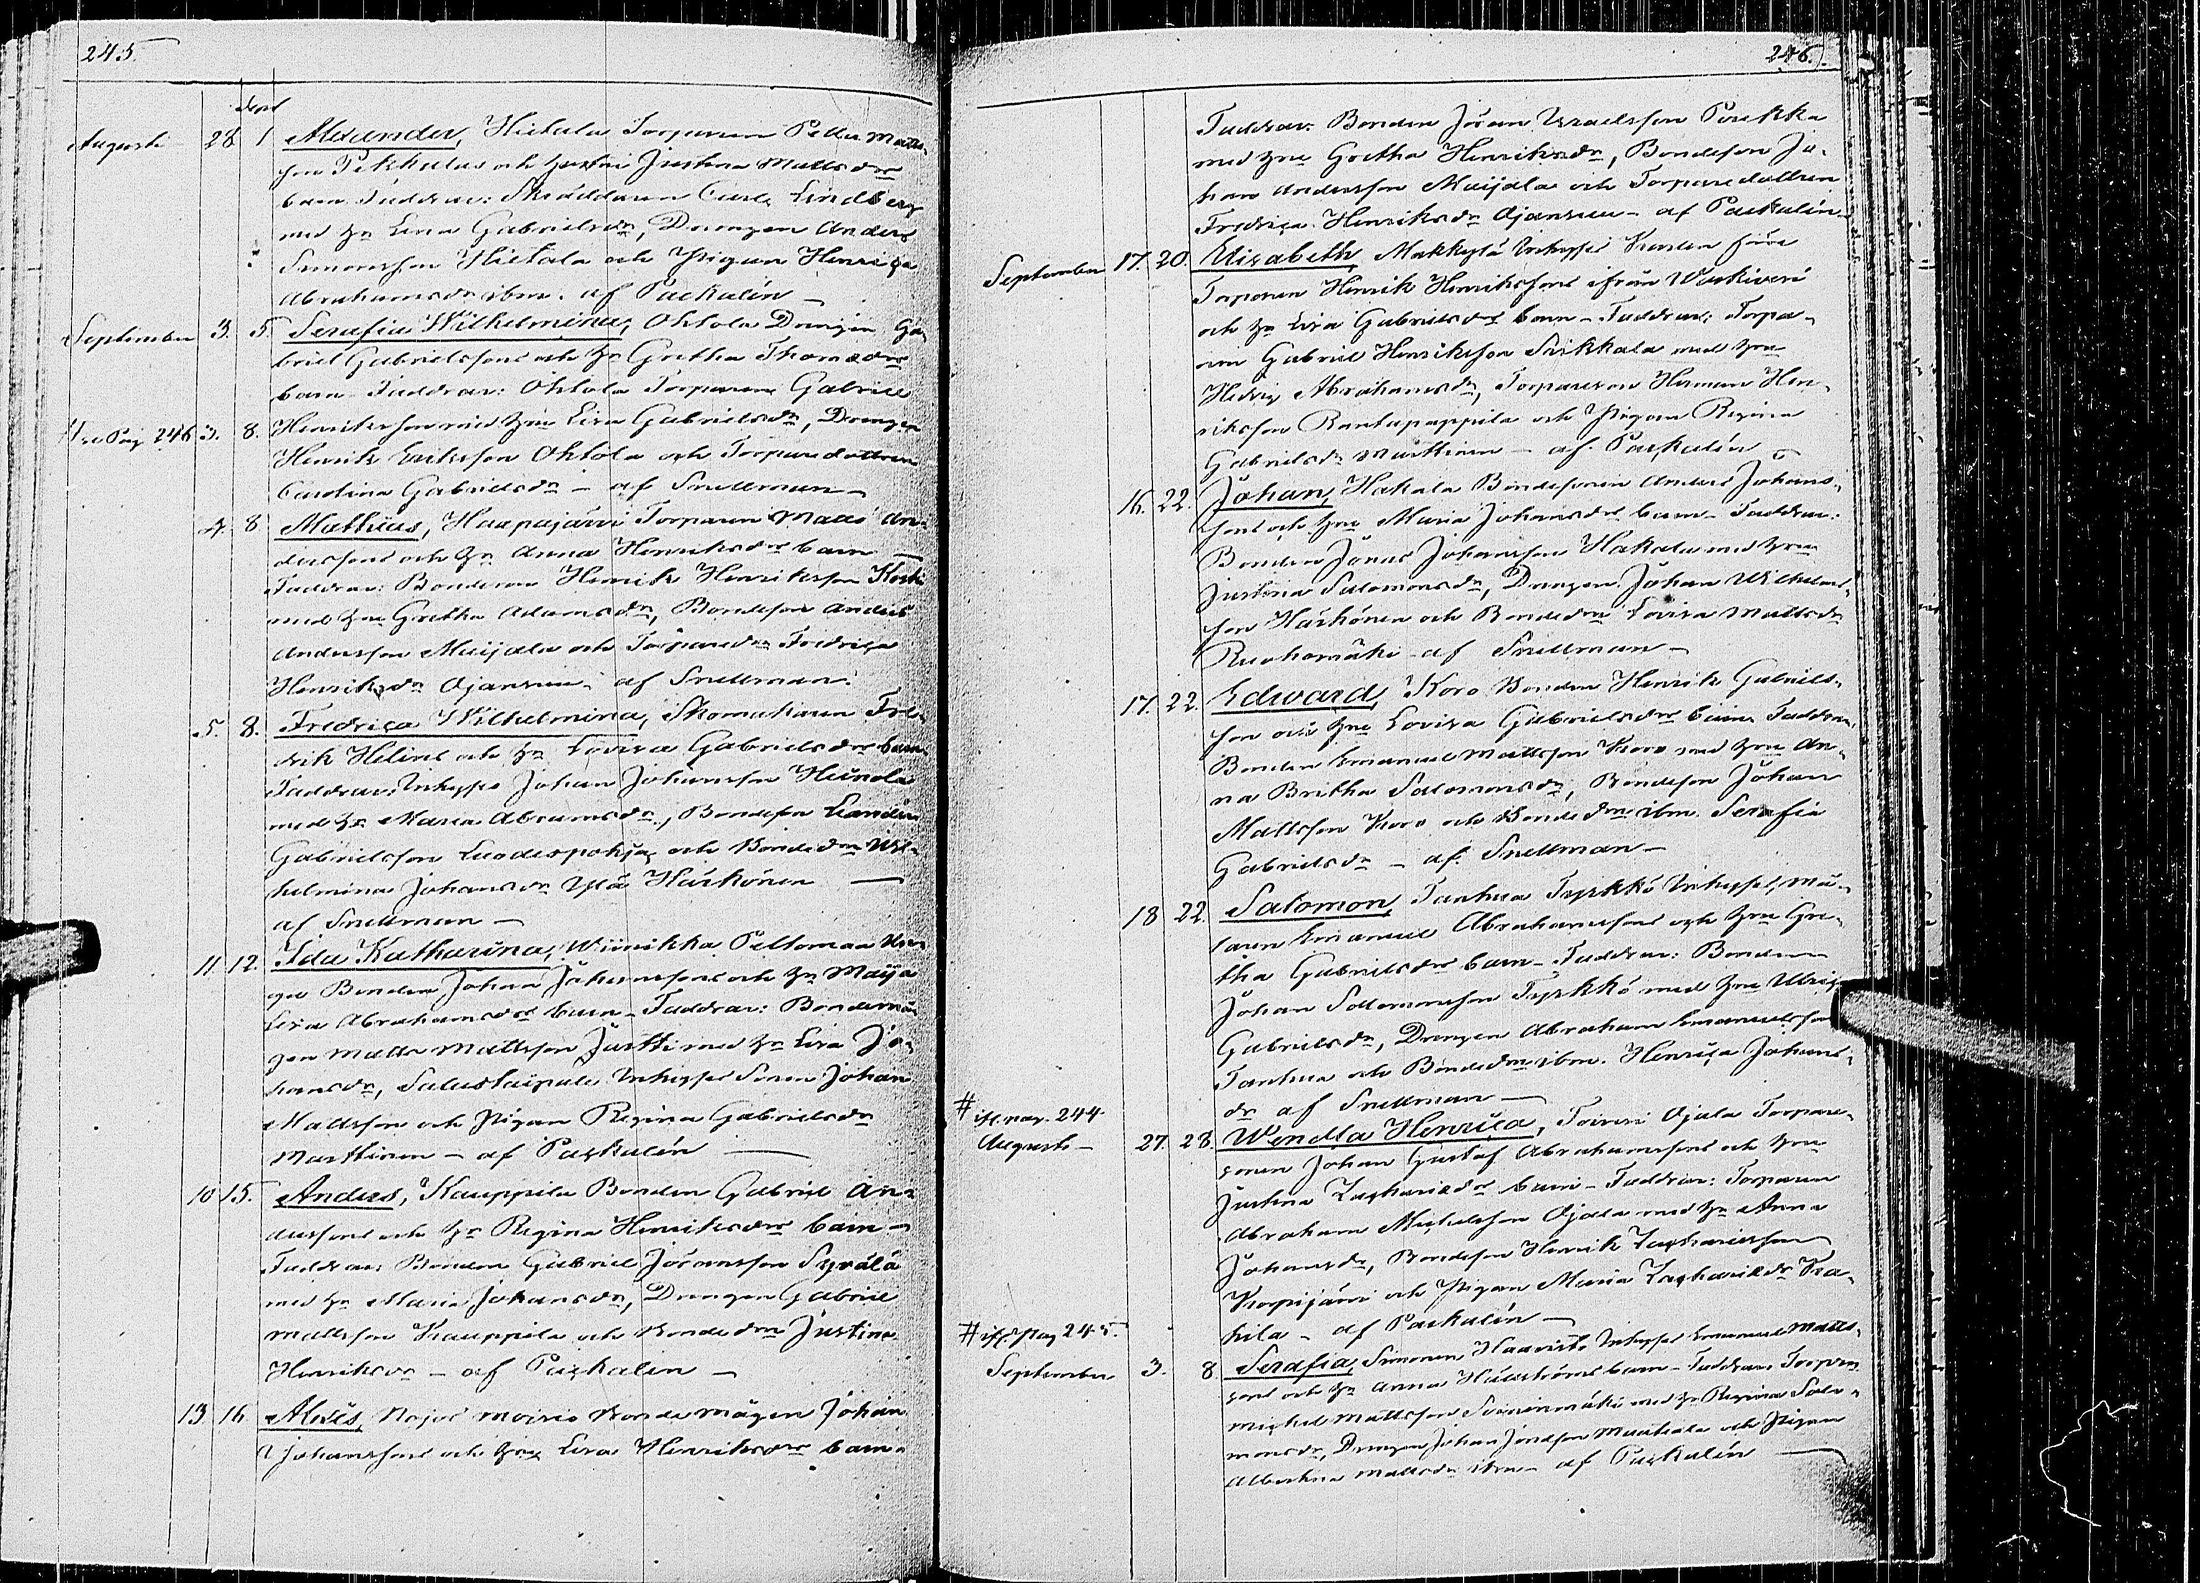 245.
Sept
Augusti 28 1 Alexander, Hietala Torparen Petter Matts-
son Pekkalas och hustru Justina Mattsdrs
barn. Faddrar: Skräddaren Carl Lindberg
med h: Lisa Gabrielsdr, Drängen Anders
Simonsson Hietala och Pigan Henrica
Abrahamsdr ibm. af Packalén —
September 3. 5. Serafia Wilhelmina, Ohtola Drängen Ga-
briel Gabrielssons och h: Gretha Thomædrs
barn Faddrar: Ohtola Torparen Gabriel
# se Pag 246 3. 8. Henriksson med h:u Lisa Gabrielsdr, Drengen
Henrik Eriksson Ohtola och Torparedottren
Carolina Gabrielsdr — af Snellman —
4. 8 Mathias, Haapajärvi Torparen Matts An-
derssons och h: Anna Henriksdrs barn —
Faddrar: Bonden Henrik Henriksson Koski
med h:u Gretha Adamsdr, Bondeson Anders
Andersson Maijala och Torparedr Fredrica
Henriksdr Ojansuu — af Snellman.
5. 8. Fredrica Wilhelmina, Skomakaren Fre-
drik Helins och h: Lovisa Gabrielsdrs barn
Faddrar: Inhyses Johan Johansson Heinola
med h: Maria Abramsdr, Bondeson Leander
Gabrielsson Luodespohja och Bondedr Wil-
helmina Johansdr Ylä Härkönen —
af Snellman —
11 12. Ida Katharina, Wiinikka Peltomaa
Bonden Johan Johanssons och h: Maija
Lisa Abrahamsdrs barn — Faddrar: Bondemå-
gen Matts Mattsson Jüstti med h: Lisa Jo-
hansdr, Salustaipale Inhyses Sonen Johan
Mattsson och Pigan Regina Gabrielsdr
Marttinen — af Packalén —
10 15. Anders, Kauppila Bonden Gabriel An-
derssons och h: Regina Henriksdrs barn —
Faddrar: Bonden Gabriel Jöransson Syrälä
med h: Maria Johansdr, Drengen Gabriel
Mattsson Kauppila och Bondedr Justina
Henriksdr — af Packalén —
13 16 Alexis, Nojos moisio Bondemågen Johan
Johanssons och h:u Lisa Henriksdrs barn —
246.
Faddrar: Bonden Jöran Israelsson Porkka
med h:u Gretha Henriksdr, Bondeson Jo-
han Andersson Maijala och Torparedottren
Fredrica Henriksdr Ojansuu — af Packalén —
September 17. 20. Elisabeth, Makkylä Inhyses Karlen före
Torparen Henrik Henrikssons ifrån Waskivesi
och h: Lisa Gabrielsdrs barn — Faddrar: Torpa-
ren Gabriel Henriksson Sikkala med h:u
Hedvig Abrahamsdr, Torpareson Herman Hen-
riksson Rantapappila och Pigan Regina
Gabrielsdr Marttinen — af Packalén
16. 22. Johan, Hakala Bondesonen Anders Johans-
sons och h:u Maria Johansdrs barn — Faddrar:
Bonden Jonas Johansson Hakala med h:u
Justina Salomonsdr, Drengen Johan Wilhelms-
son Härkönen och Bondedr Lovisa Mattsdr
Ruohomäki — af Snellman —
17. 22. Edward, Koro Bonden Henrik Gabriels-
son och h:u Lovisa Gabrielsdrs barn Faddrar
Bonden Emanuel Mattsson Koro med h:u An-
na Britha Salomonsdr, Bondeson Johan
Mattsson Koro och Bondedr ibm. Serafia
Gabrielsdr — af Snellman —
18 22. Salomon, Tanhua Tyrkkö Inhyses, Må-
laren Emanuel Abrahamssons och h:u Gre-
tha Gabrielsdrs barn — Faddrar: Bonden
Johan Salomonsson Tyrkkö med h:u Ulrica
Gabrielsdr, Drengen Abraham Emanuelsson
Tanhua och Bondedr ibm. Henrica Johans-
dr af Snellman —
# if. pag. 244
Augusti — 27. 28. Wendla Henrica, Toivesi Ojala Torpare-
sonen Johan Gustaf Abrahamssons och h:u
Justina Zachariædrs barn — Faddrar: Torparen
Abraham Michelsson Ojala med h: Anna
Johansdr, Bondeson Henrik Zachariasson
Korpijärvi och Pigan Maria Zachariædr
— af Packalén —
# if. Pag 245.
September 3. 8 Serafia, Simonen Haavisto Inhyses Emanuel Matts-
sons och h: Anna Hellströms barn — Faddrar: Torparen
Michel Mattsson Soininmäki med h: Regina Salo-
monsdr, Drengen Johan Jonasson Mattala och Pigan
Albertina Mattsdr ibm — af Packalén —